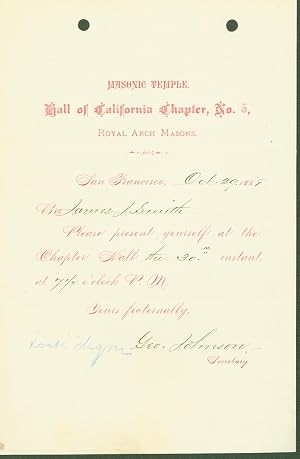 MASONIC TEMPLE.
Hall of California Chapter, No. 5,
ROYAL ARCH MASONS.
San Francisco, Oct. 29, 188
Bro James J. Smith
Please present yourself at the
Chapter Hall the 30th instant,
at 7 1/2 o'clock P. M.
Yours fraternally,
Geo. Johnson,
Secretary